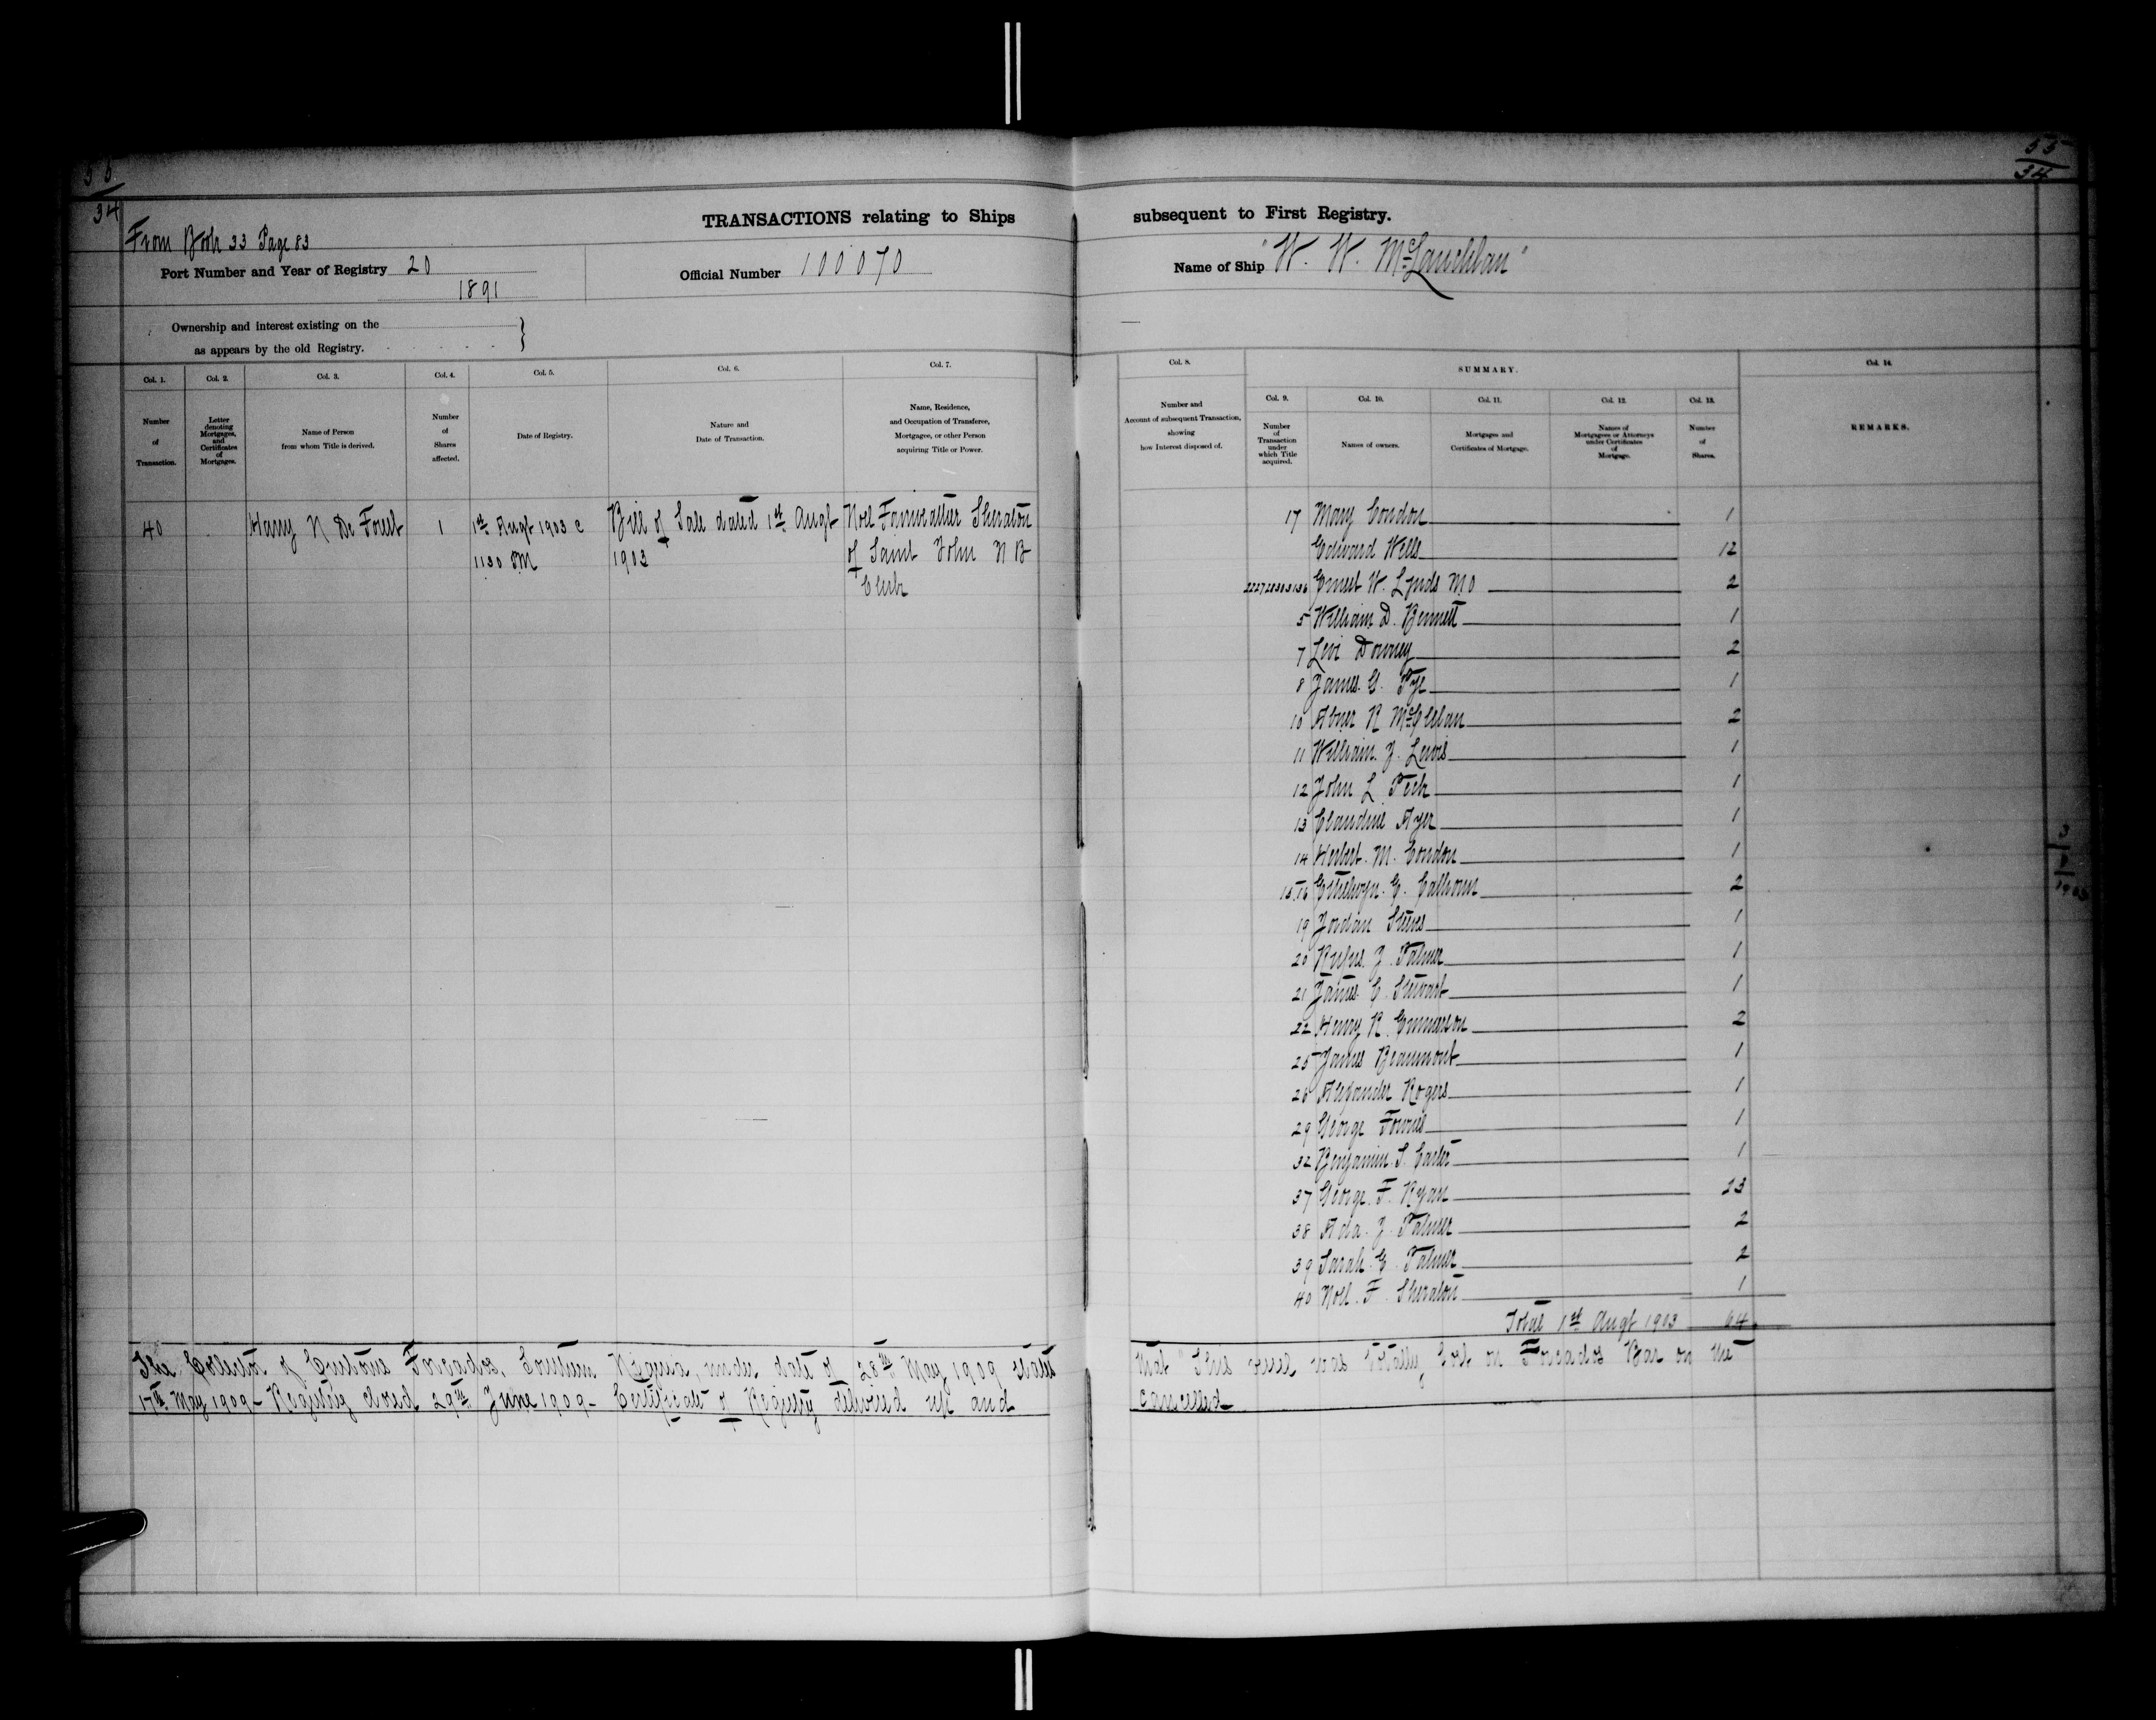 55
34
55
34
TRANSACTIONS relating to Ships subsequent to First Registry.
From Book 33 Page 83
Port Number and Year of Registry 20
1891
Official Number 100070
Name of Ship "W. W. McLauchlan"
Ownership and interest existing on the
as appears by the old Registry.
Col. 1.
Number
of
Transaction.
Col. 2.
Letter
denoting
Mortgages,
and
Certificates
of
Mortgages.
Col. 3.
Name of Person
from whom Title is derived.
Col. 4.
Number
of
Shares
affected.
Col. 5.
Date of Registry.
Col. 6.
Nature and
Date of Transaction.
Col. 7.
Name, Residence,
and Occupation of Transferee,
Mortgagee, or other Person
acquiring Title or Power.
Col. 8.
Number and
Account of subsequent Transaction,
showing
how Interest disposed of.
SUMMARY.
Col. 9.
Number
of
Transaction
under
which Title
acquired.
Col. 10.
Names of owners.
Col. 11.
Mortgages and
Certificates of Mortgage.
Col. 12.
Names of
Mortgagees or Attorneys
under Certificates
of
Mortgage.
Col. 13.
Number
of
Shares.
Col. 14.
REMARKS.
40 Harry N De Forest 1 1st Augt 1903 Bill of Sale dated 1st Augt Noel Fairweather Sheraton
1130 1903 of Saint John N B
Clerk
17 Mary Condon 1
Edward Wells 12
Ernest W. Lynds 2
5 William D. Bennett 1
7 Levi Downey 2
8 James C. Pye 1
10 Abner R McClelan 2
11 William J. Lewis 1
12 John L. Peck 1
13 Claudine Ayer 1
14 Herbert M. Condon 1
15.16 C. Calhoun 2
19 Jordan Steeves 1
20 Rufus J. Palmer 1
21 James C. Stewart 1
22 Henry R. Emmerson 2
25 James Beaumont 1
26 Alexander Rogers 1
29 George Fownes 1
32 Benjamin S. Carter 1
37 George F. Ryan 23
38 Ada J. Palmer 2
39 Sarah E. Palmer 2
40 Noel F. Sheraton 1
Total 1st Augt 1903 64
The Collector of Customs Forcados, Southern Nigeria, under date of 28th May 1909 states that "This vessel was totally lost on Forcados Bar on the
17th May 1909 - Registry closed 29th June 1909 - Certificate of Registry delivered up and cancelled